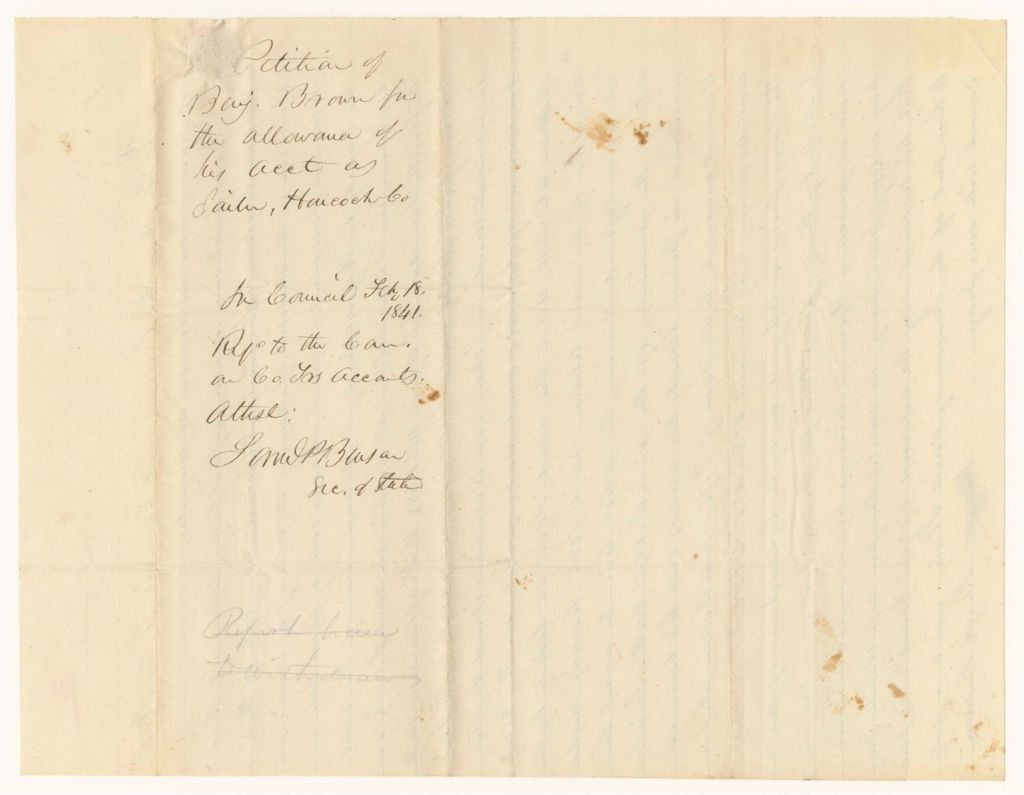 Petition of
Benj. Brown for
the allowance of
his acct as
Jailer, Hancock Co
In Council Feby 18.
1841.
Refd to the Com.
on Co. Trs Accounts.
Attest:
Saml P Benson
Sec. of State
Report leave
to withdraw